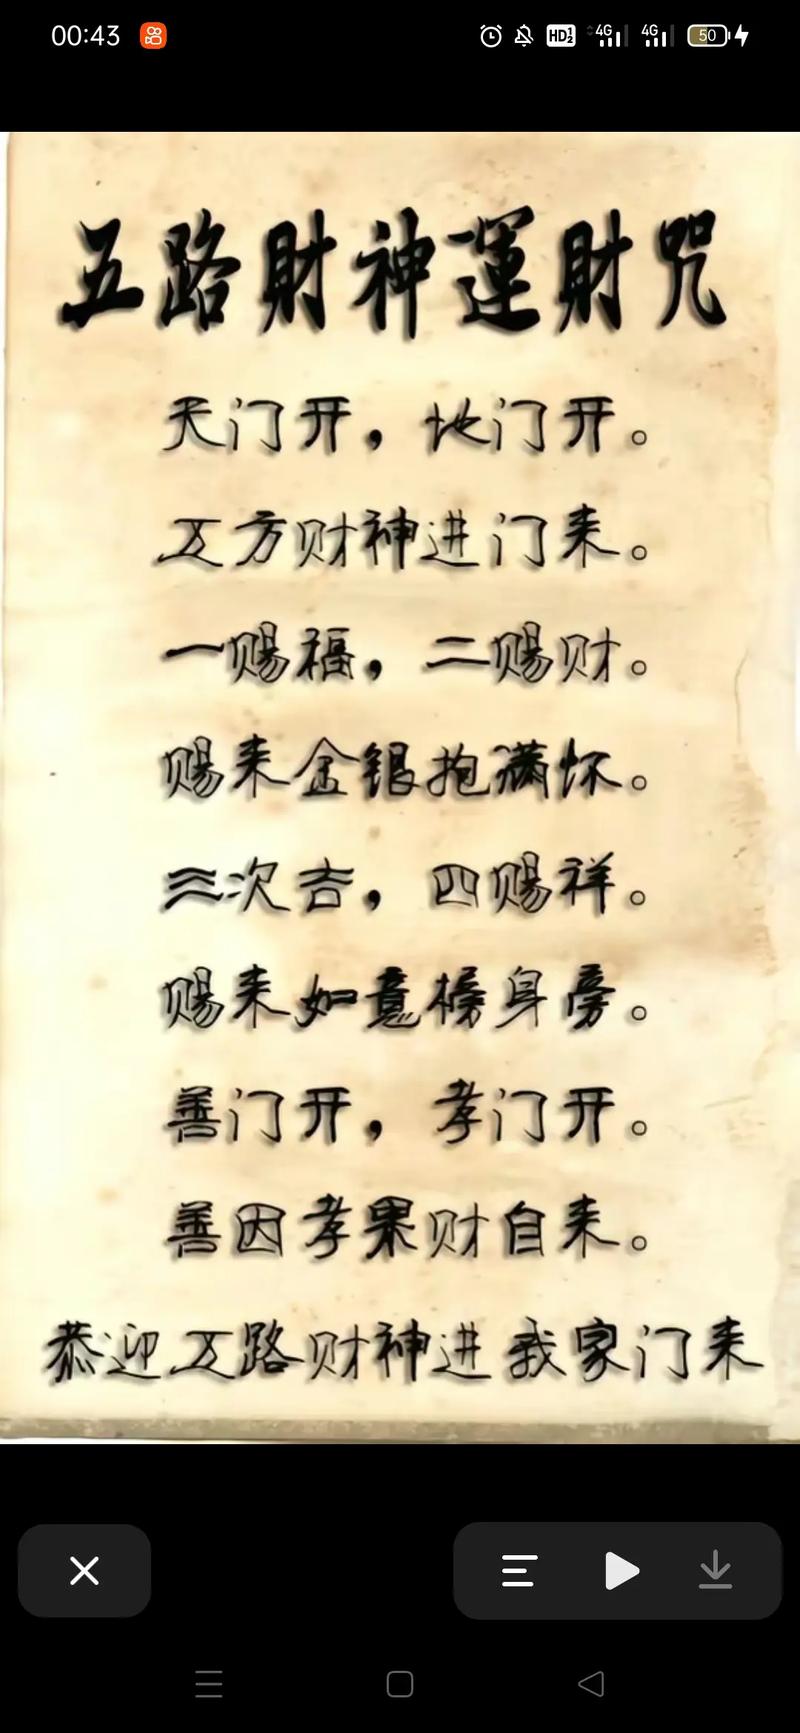 00:43 HD1 2 4G 4G 50
五路財神運財咒
天门开，地门开。
五方财神进门来。
一赐福，二赐财。
赐来金银抱满怀。
三次吉，四赐祥。
赐来如意榜身旁。
善门开，孝门开。
善因孝果财自来。
恭迎五路财神进我家门来